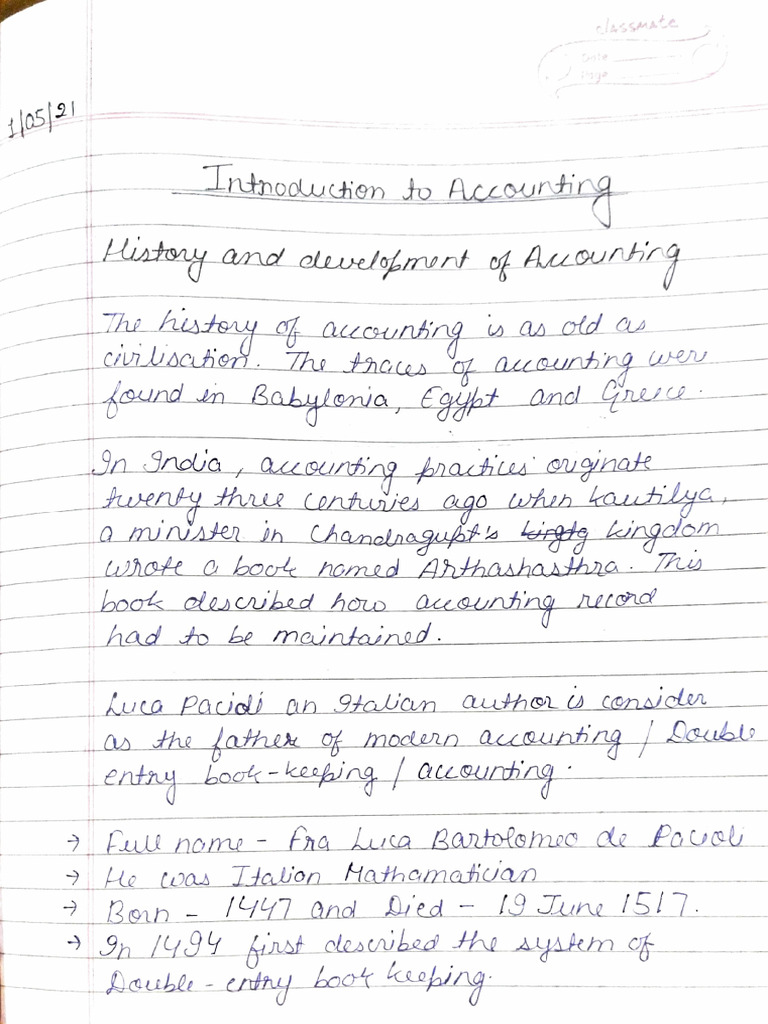 classmate
Date
Page
1/05/21
Introduction to Accounting
History and development of Accounting
The history of accounting is as old as
civilisation. The traces of accounting were
found in Babylonia, Egypt and Greece.
In India, accounting practices originate
twenty three centuries ago when kautilya,
a minister in Chandragupt's kingdom
wrote a book named Arthashasthra. This
book described how accounting record
had to be maintained.
Luca Pacioli an Italian author is consider
as the father of modern accounting / Double
entry book-keeping / accounting.
→ Full name - Fra Luca Bartolomeo de Pacioli
→ He was Italian Mathamatician
→ Born - 1447 and Died - 19 June 1517.
→ In 1494 first described the system of
Double-entry book keeping.